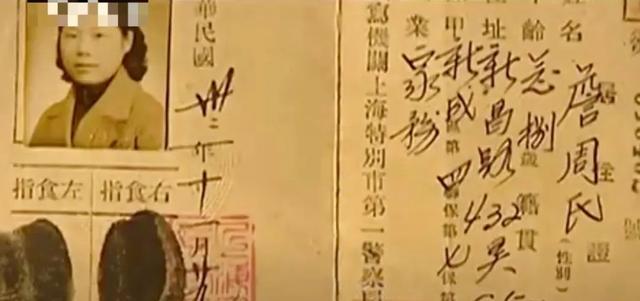 居 證
名 詹周氏 (性別)
齡 捌歲 籍貫
址 新昌路432
甲 新成區第四聯保第七保
業 家務
寫機關上海特別市第一警察局
華民國卅二年十一月廿
右食指
左食指